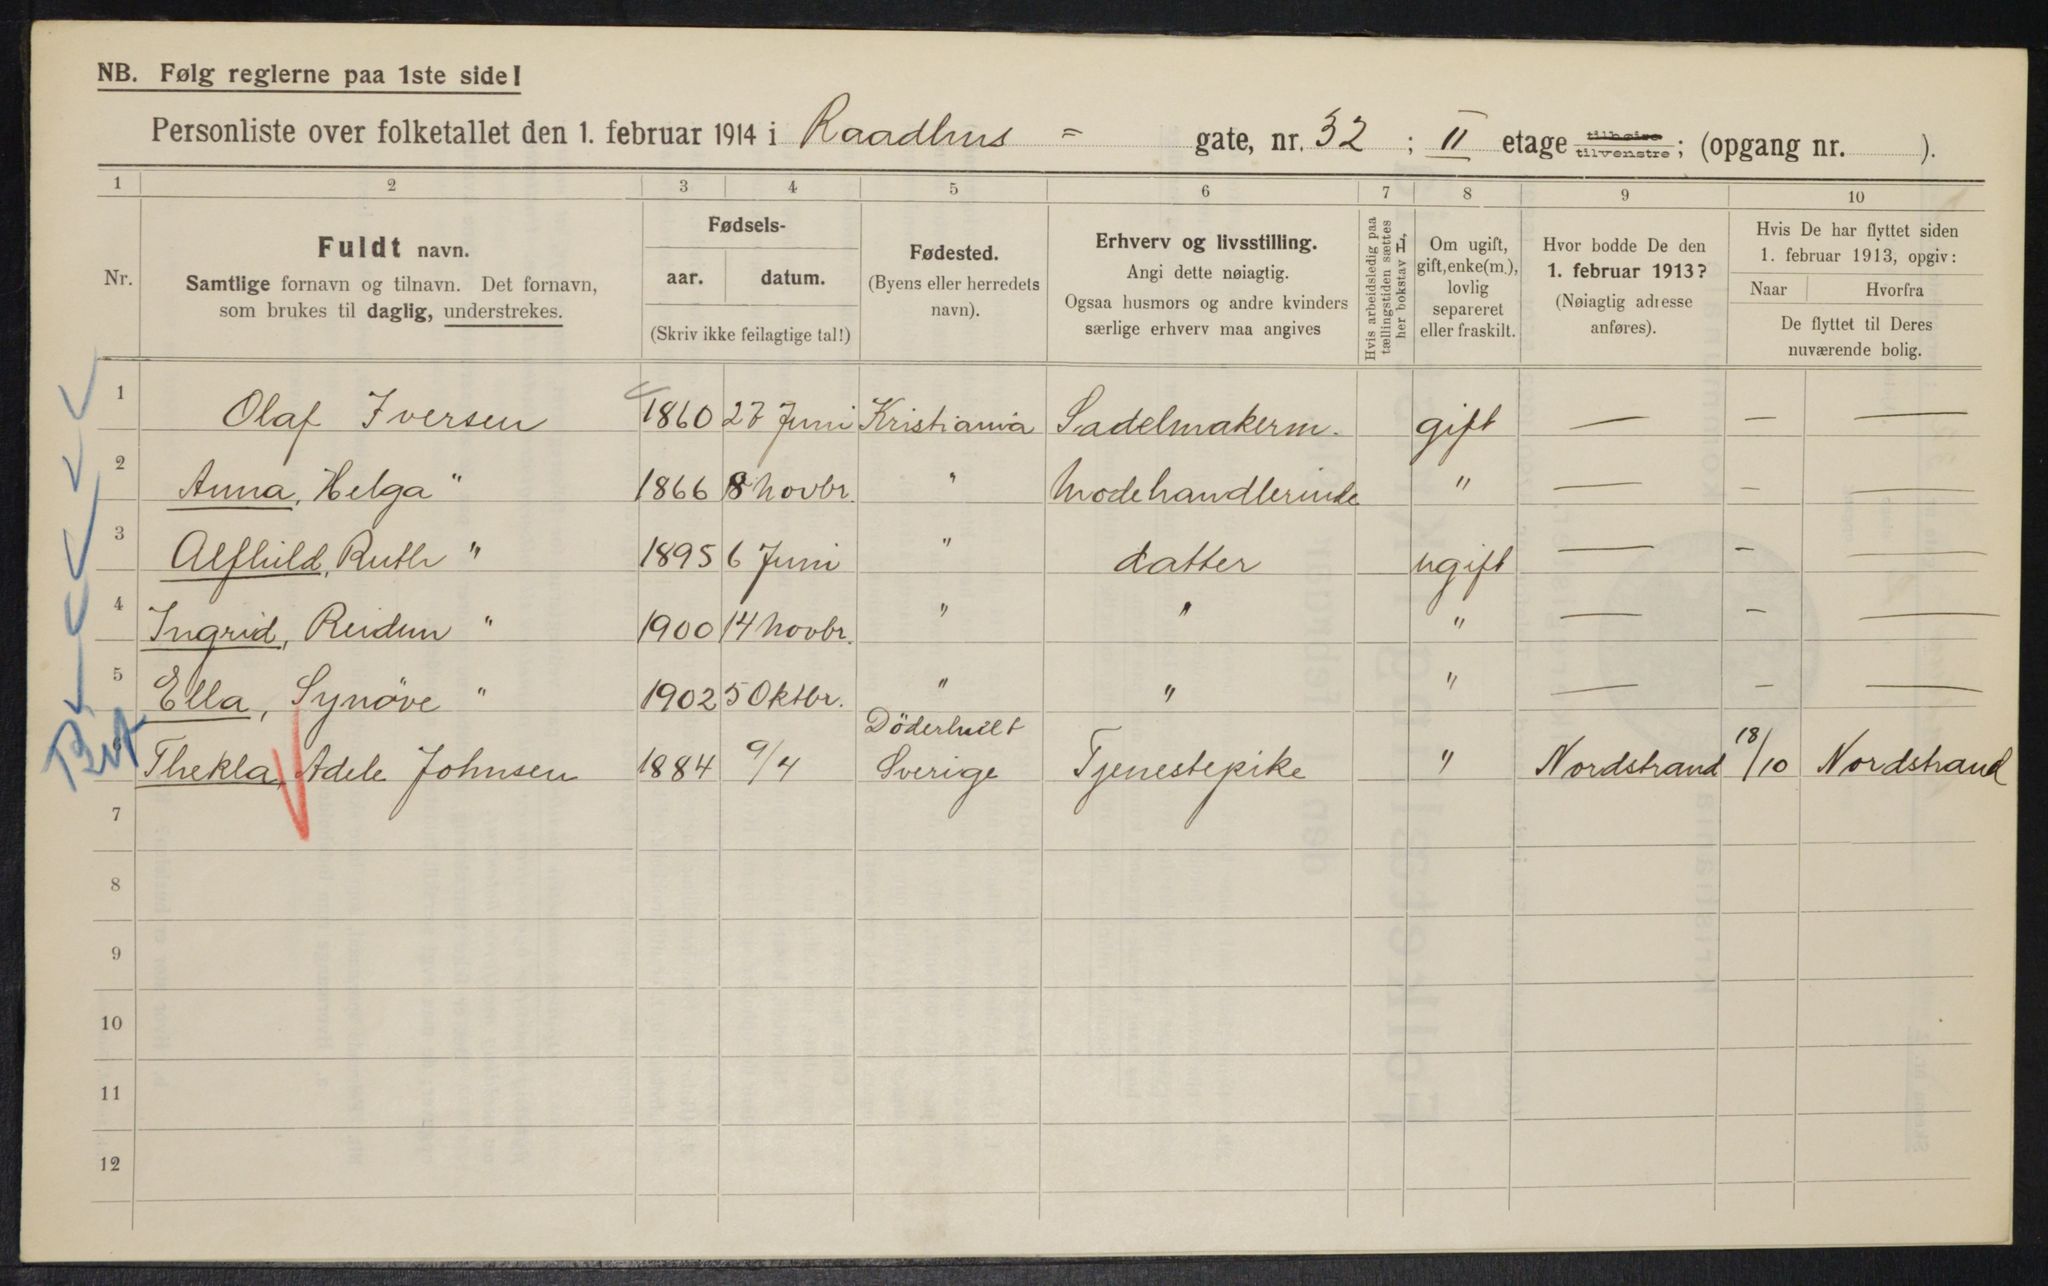 NB. Følg reglerne paa 1ste side!
Personliste over folketallet den 1. februar 1914 i Raadhus = gate, nr. 32 ; II etage tilhøire tilvenstre ; (opgang nr. ).
1 2 3 4 5 6 7 8 9 10
Nr.
Fuldt navn.
Samtlige fornavn og tilnavn. Det fornavn,
som brukes til daglig, understrekes.
Fødsels-
aar. datum.
(Skriv ikke feilagtige tal!)
Fødested.
(Byens eller herredets
navn).
Erhverv og livsstilling.
Angi dette nøiagtig.
Ogsaa husmors og andre kvinders
særlige erhverv maa angives
Hvis arbeidsledig paa
tællingstiden sættes
her bokstav L,
Om ugift,
gift, enke(m.),
lovlig
separeret
eller fraskilt.
Hvor bodde De den
1. februar 1913?
(Nøiagtig adresse
anføres).
Hvis De har flyttet siden
1. februar 1913, opgiv:
Naar Hvorfra
De flyttet til Deres
nuværende bolig.
1 Olaf Iversen 1860 27 Juni Kristiania Sadelmakerm. gift — — —
2 Anna, Helga " 1866 8 Novbr. " Modehandlerinde " — — —
3 Alfhild, Ruth " 1895 6 Juni " datter ugift — — —
4 Ingrid, Reidun " 1900 14 Novbr. " " " — — —
5 Ella, Synöve " 1902 5 Oktbr. " " " — — —
Döderhult
6 Thekla, Adele Johnsen 1884 9/4 Sverige Tjenestepike " Nordstrand 18/10 Nordstrand
7
8
9
10
11
12